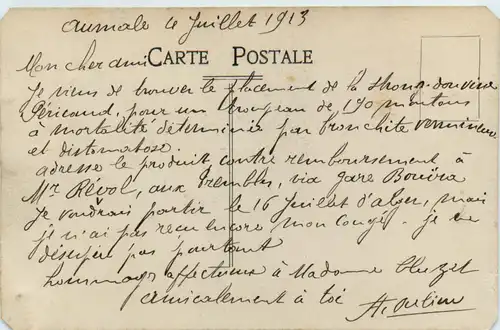 Aumale le Juillet 1913
Mon cher ami CARTE POSTALE
Je viens de trouver le placement de la
Péricaud, pour un troupeau de 190 moutons
à mortalité déterminée par bronchite vermineuse
et distomatose.
adresse le produit contre remboursement à
Mr Révol, aux trembles, via gare Bouira
Je voudrais partir le 16 Juillet d'alger, mais
je n'ai pas reçu encore mon congé. je ne
désespère pas pourtant
hommages affectueux à Madame
amicalement à toi